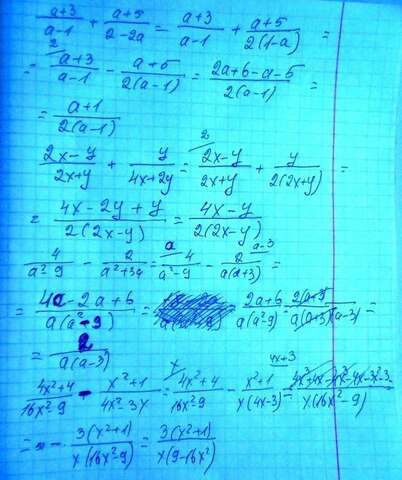 (a+3)/(a-1) + (a+5)/(2-2a) = (a+3)/(a-1) + (a+5)/(2(1-a)) =
= (a+3)/(a-1) - (a+5)/(2(a-1)) = (2a+6-a-5)/(2(a-1)) =
= (a+1)/(2(a-1))
(2x-y)/(2x+y) + y/(4x+2y) = (2x-y)/(2x+y) + y/(2(2x+y)) =
= (4x-2y+y)/(2(2x-y)) = (4x-y)/(2(2x-y))
4/(a²-9) - 2/(a²+3a) = 4/(a²-9) - 2/(a(a+3)) =
= (4a-2a+6)/(a(a²-9)) = (2a+6)/(a(a²-9)) = 2(a+3)/(a(a+3)(a-3)) =
= 2/(a(a-3))
(4x²+4)/(16x²-9) - (x²+1)/(4x²-3x) = (4x²+4)/(16x²-9) - (x²+1)/(x(4x-3)) =
= - 3(x²+1)/(x(16x²-9)) = 3(x²+1)/(x(9-16x²))